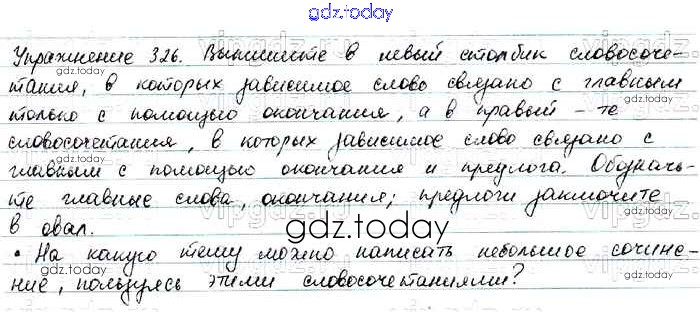 gdz.today
Упражнение 326. Выпишите в левый столбик словосоче-
gdz.today
тания, в которых зависимое слово связано с главным
только с помощью окончания, а в правый - те
словосочетания, в которых зависимое слово связано с
главным с помощью окончания и предлога. Обозначь-
те главные слова, окончания; предлоги заключите
в овал.
gdz.today
• На какую тему можно написать небольшое сочине-
ние, пользуясь этими словосочетаниями?
gdz.today
gdz.today